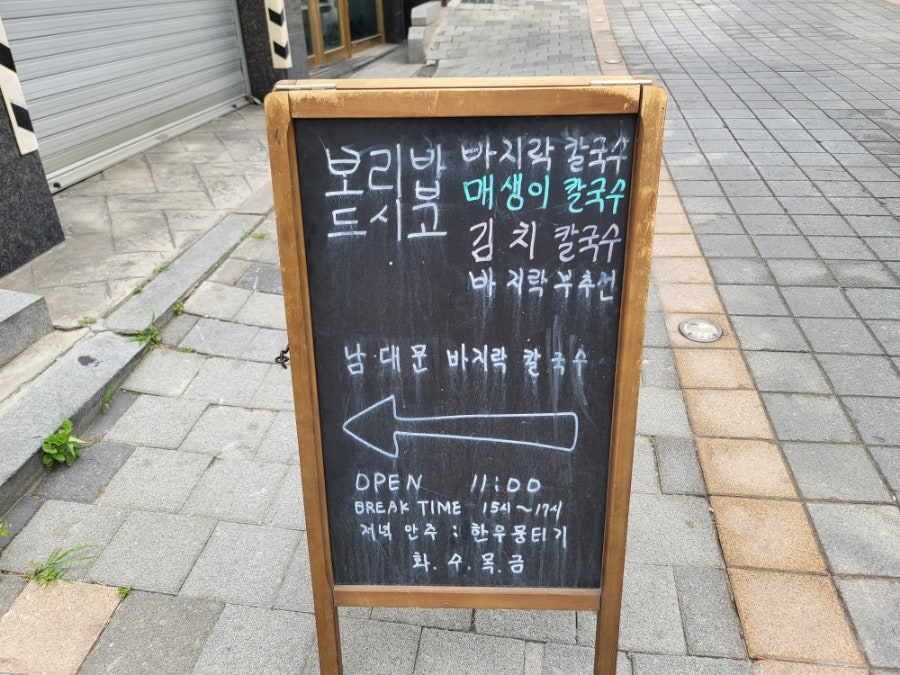 보리밥
드시고
바지락 칼국수
매생이 칼국수
김치 칼국수
바지락부추전
남대문 바지락 칼국수
OPEN 11:00
BREAK TIME 15시~17시
저녁 안주 : 한우뭉티기
화.수.목.금